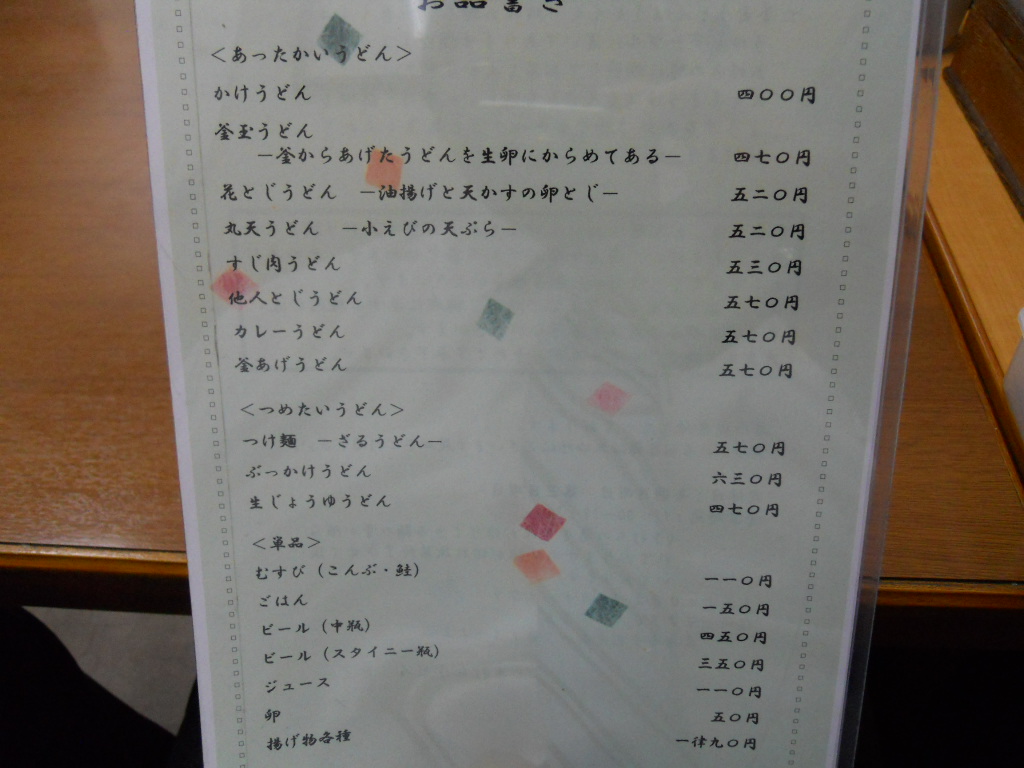 お品書き
＜あったかいうどん＞
かけうどん 四〇〇円
釜玉うどん
－釜からあげたうどんを生卵にからめてある－ 四七〇円
花とじうどん －油揚げと天かすの卵とじ－ 五二〇円
丸天うどん －小えびの天ぷら－ 五二〇円
すじ肉うどん 五三〇円
他人とじうどん 五七〇円
カレーうどん 五七〇円
釜あげうどん 五七〇円
＜つめたいうどん＞
つけ麺 －ざるうどん－ 五七〇円
ぶっかけうどん 六三〇円
生じょうゆうどん 四七〇円
＜単品＞
むすび（こんぶ・鮭） 一一〇円
ごはん 一五〇円
ビール（中瓶） 四五〇円
ビール（スタイニー瓶） 三五〇円
ジュース 一一〇円
卵 五〇円
揚げ物各種 一律九〇円